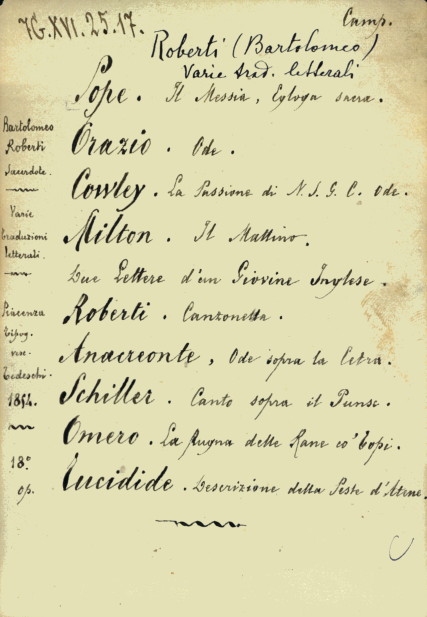 7G.XVI.25.17.
Camp.
Roberti (Bartolomeo)
Varie trad. letterali
Pope. Il Messia, Egloga sacra.
Orazio. Ode.
Cowley. La Passione di N.S.G.C. Ode.
Milton. Il Mattino.
Due Lettere d'un Giovine Inglese.
Roberti. Canzonetta.
Anacreonte, Ode sopra la Cetra.
Schiller. Canto sopra il Punsc.
Omero. La Pugna delle Rane co' Topi.
Tucidide. Descrizione della Peste d'Atene.
Bartolomeo
Roberti
Sacerdote.
Varie
traduzioni
letterali.
Piacenza
Tipog.
Tedeschi.
18°
op.